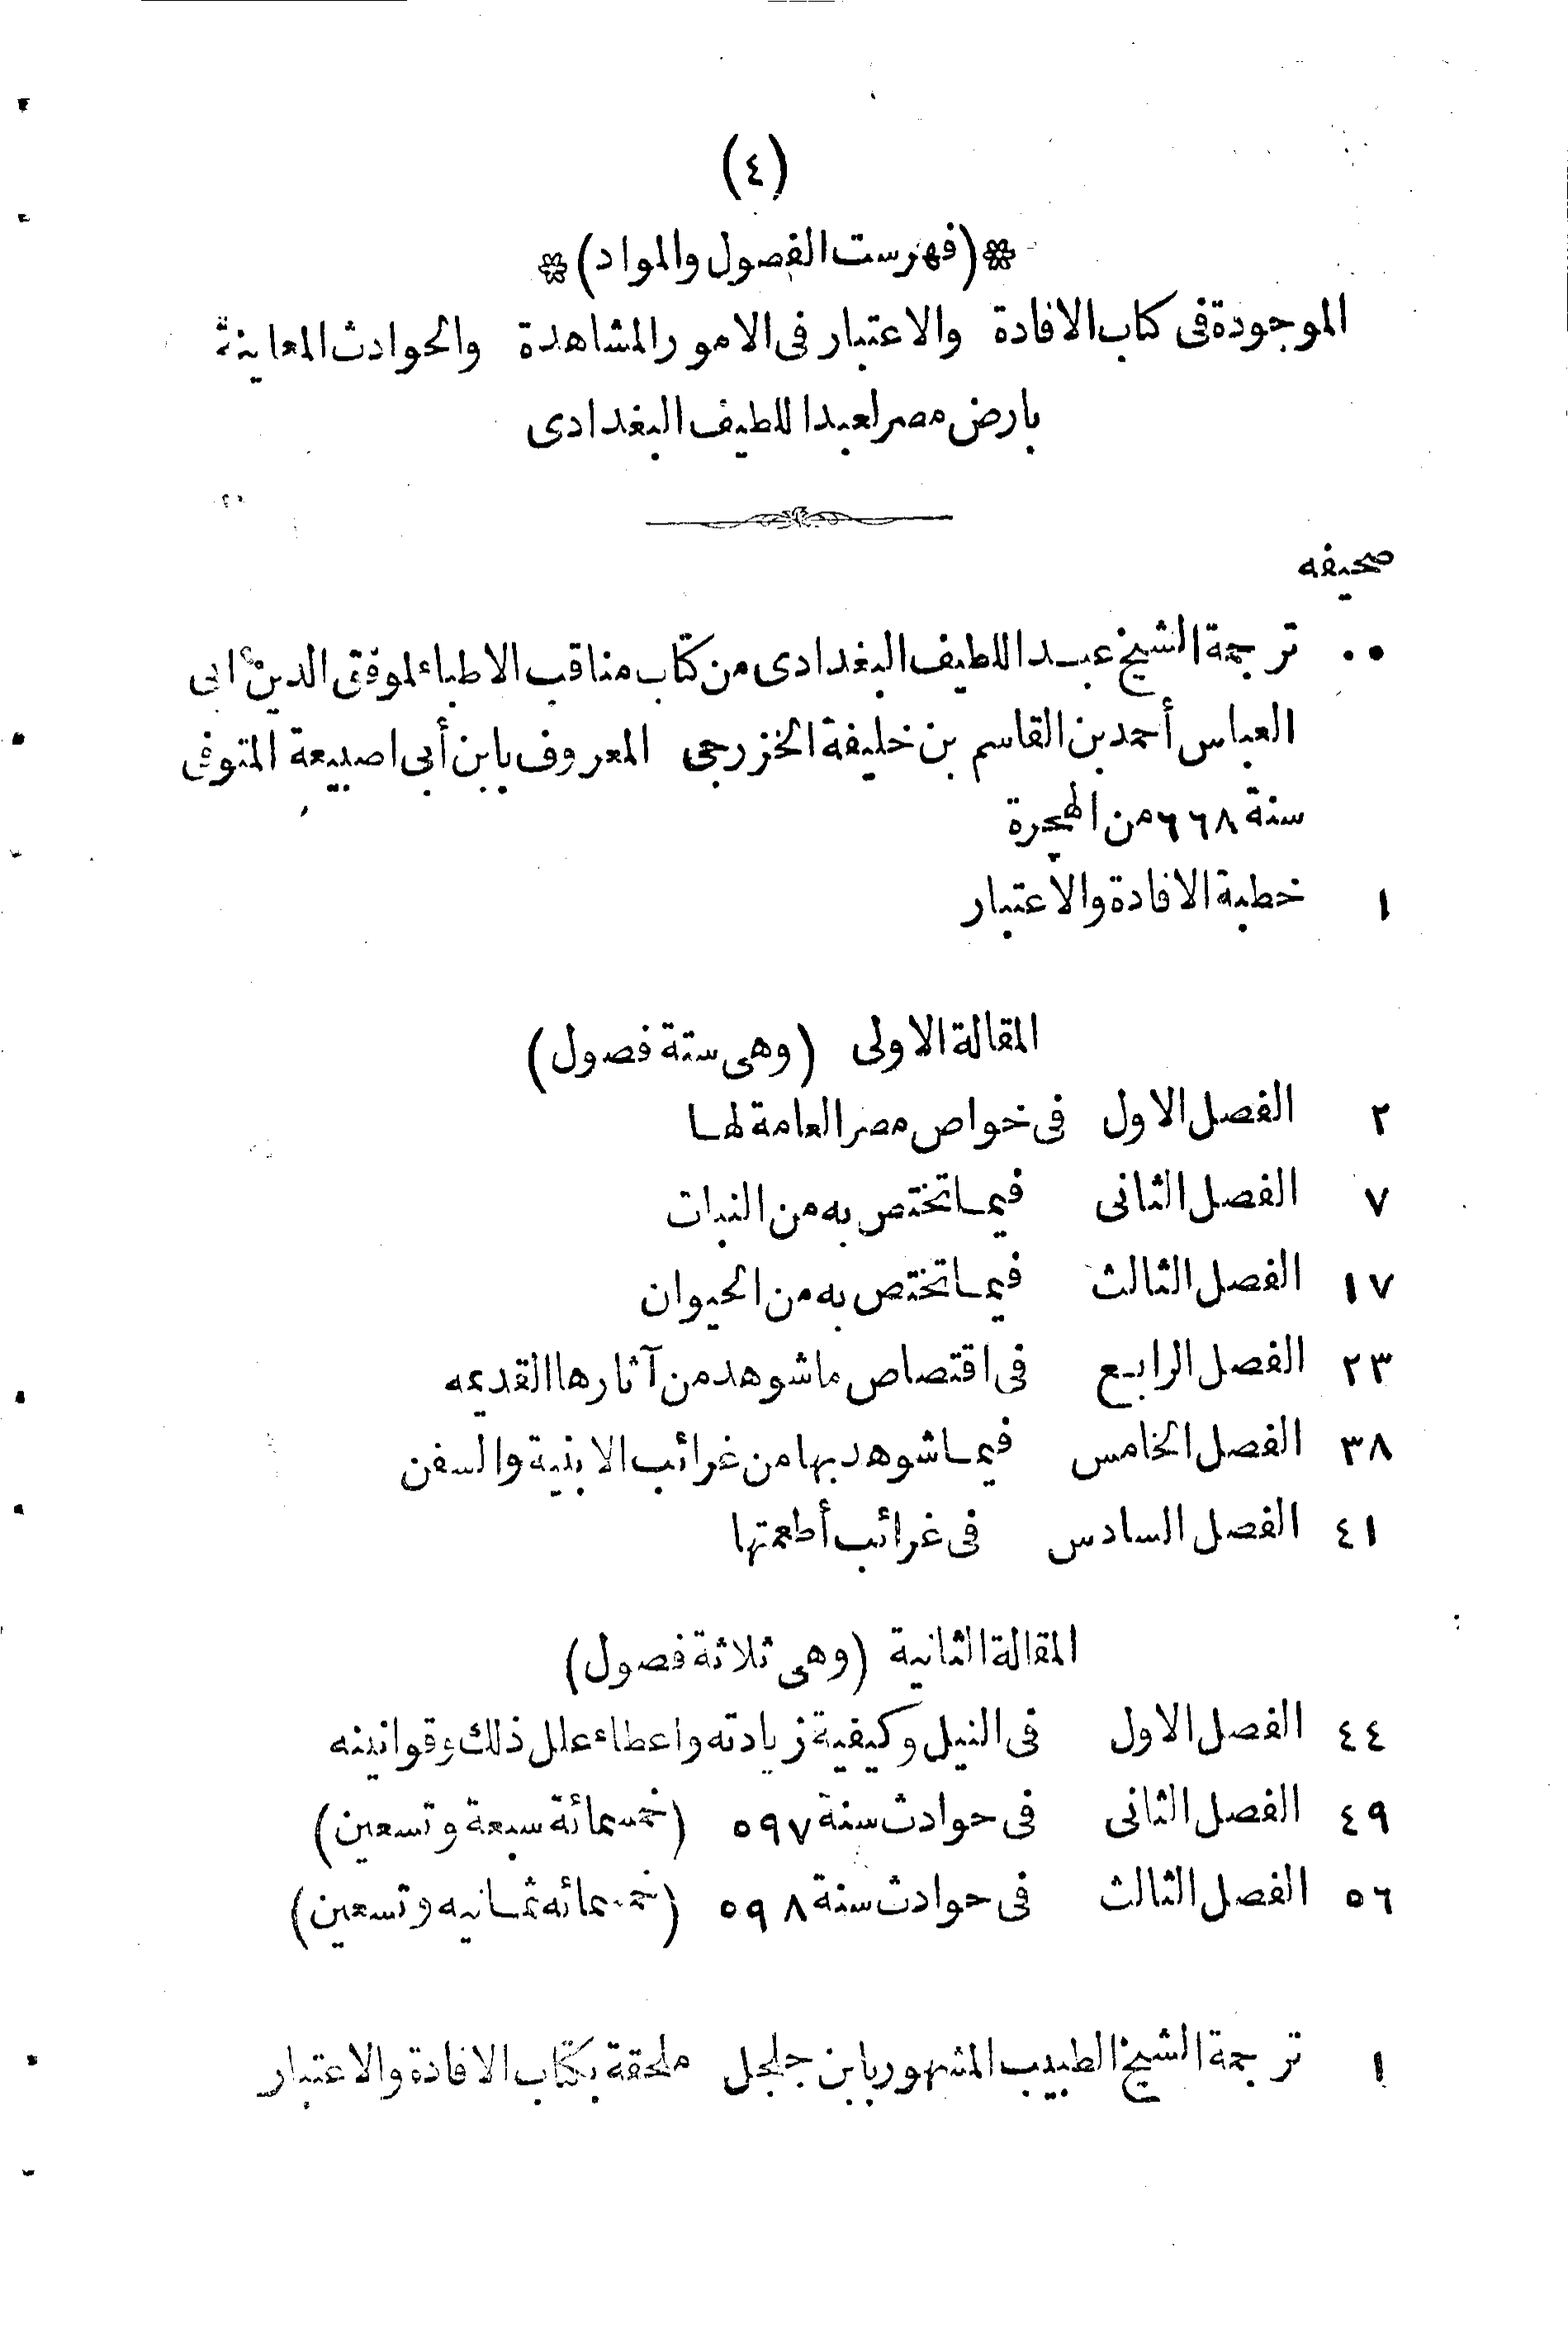 (٤)
*(فهرست الفصول والمواد)*
الموجودة فى كتاب الافادة والاعتبار فى الامور المشاهدة والحوادث المعاينة
بارض مصر لعبد اللطيف البغدادى
صحيفه
٠٠ ترجمة الشيخ عبد اللطيف البغدادى من كتاب مناقب الاطباء لموفق الدين أبى
العباس أحمد بن القاسم بن خليفة الخزرجى المعروف بابن أبى اصيبعة المتوفى
سنة ٦٦٨ من الهجرة
١ خطبة الافادة والاعتبار
المقالة الاولى (وهى ستة فصول)
٢ الفصل الاول فى خواص مصر العامة لها
٧ الفصل الثانى فيما تختص به من النبات
١٧ الفصل الثالث فيما تختص به من الحيوان
٢٣ الفصل الرابع فى اقتصاص ما شوهد من آثارها القديمه
٣٨ الفصل الخامس فيما شوهد بها من غرائب الابنية والسفن
٤١ الفصل السادس فى غرائب أطعمتها
المقالة الثانية (وهى ثلاثة فصول)
٤٤ الفصل الاول فى النيل وكيفية زيادته واعطاء علل ذلك وقوانينه
٤٩ الفصل الثانى فى حوادث سنة ٥٩٧ (خمسمائة سبعة وتسعين)
٥٦ الفصل الثالث فى حوادث سنة ٥٩٨ (خمسمائه ثمانيه وتسعين)
١ ترجمة الشيخ الطبيب المشهور بابن جلجل ملحقة بكتاب الافادة والاعتبار